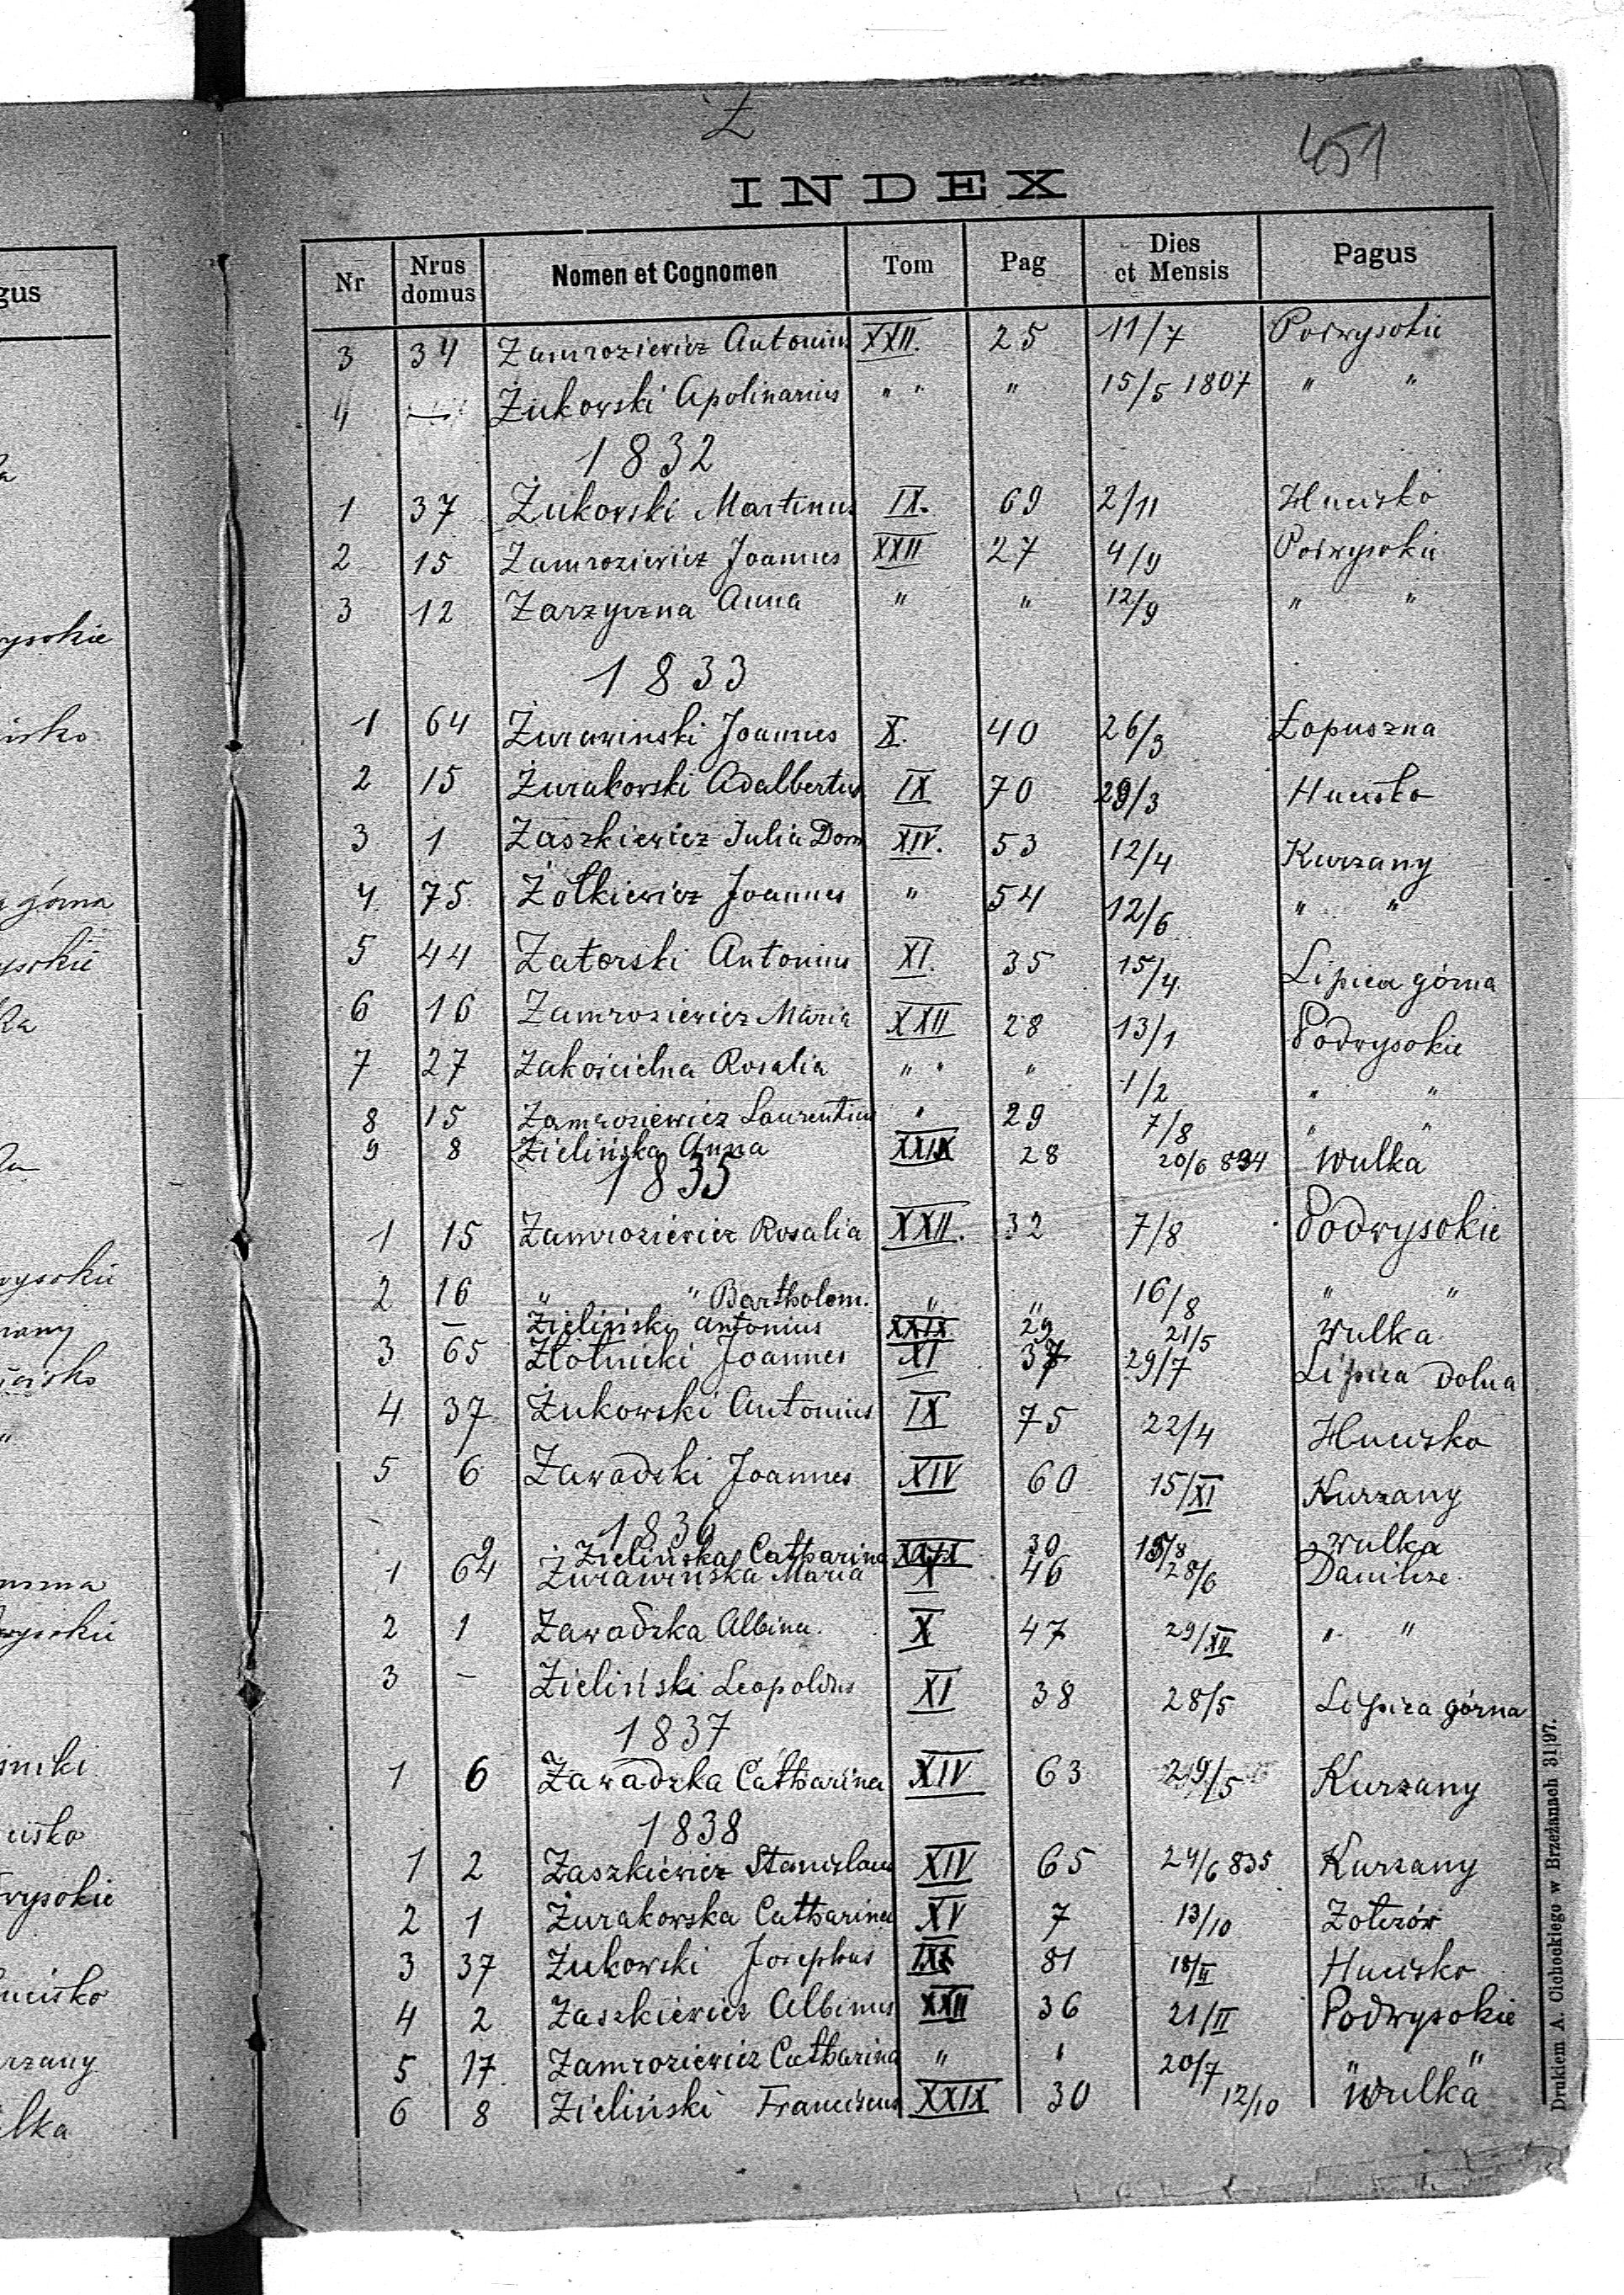 Z
451
INDEX
Nr Nrus domus Nomen et Cognomen Tom Pag Dies et Mensis Pagus
3 34 Zamroziewicz Antonius XXII. 25 11/7 Podwysokie
4 — Żukowski Apolinarius " " " 15/5 1807 " "
1832
1 37 Żukowski Martinus IX. 69 2/11 Hucisko
2 15 Zamroziewicz Joannes XXII 27 4/9 Podwysokie
3 12 Zarzyczna Anna " " 12/9 " "
1833
1 64 Żurawinski Joannes X. 40 26/3 Łapuszna
2 15 Żurakowski Adalbertus IX 70 29/3 Hucisko
3 1 Zaszkiewicz Julia Dom XIV. 53 12/4 Kurzany
4 75 Żołkiewicz Joannes " 54 12/6 " "
5 44 Zatorski Antonius XI. 35 15/4 Lipica górna
6 16 Zamroziewicz Maria XXII 28 13/1 Podwysokie
7 27 Zakościelna Rosalia " " " 1/2 " "
8 15 Zamroziewicz Laurentius " 29 7/8 " "
9 8 Zielińska Anna XXIX 28 20/6 834 Wulka
1835
1 15 Zamroziewicz Rosalia XXII. 32 7/8 Podwysokie
2 16 " " Bartholom. " " 16/8 " "
— Zielińsky Antonius XXIX 29 21/5 Wulka
3 65 Złotnicki Joannes XI 37 29/7 Lipica Dolna
4 37 Żukowski Antonius IX 75 22/4 Hucisko
5 6 Zawadzki Joannes XIV 60 15/XI Kurzany
1836
9 Zielińska Catharina XXIX 30 15/8 Wulka
1 64 Żurawinska Maria X 46 28/6 Danilcze
2 1 Zawadzka Albina. X 47 29/XII " "
3 — Zieliński Leopoldus XI 38 28/5 Lipica górna
1837
1 6 Zawadzka Catharina XIV 63 29/5 Kurzany
1838
1 2 Zaszkiewicz Stanislaus XIV 65 24/6 835 Kurzany
2 1 Żurakowska Catharina XV 7 13/10 Żołczów
3 37 Żukowski Josephus IX 81 18/II Hucisko
4 2 Zaszkiewicz Albinus XXII 36 21/II Podwysokie
5 17 Zamroziewicz Catharina " " 20/7 " "
6 8 Zieliński Franciscus XXIX 30 12/10 Wulka
Drukiem A. Cichockiego w Brzeżanach 31|97.
gus
ysokie
isko
górna
ysokie
wysokie
rany
cisko
"
wysokie
niki
cisko
wysokie
ucisko
rzany
ulka